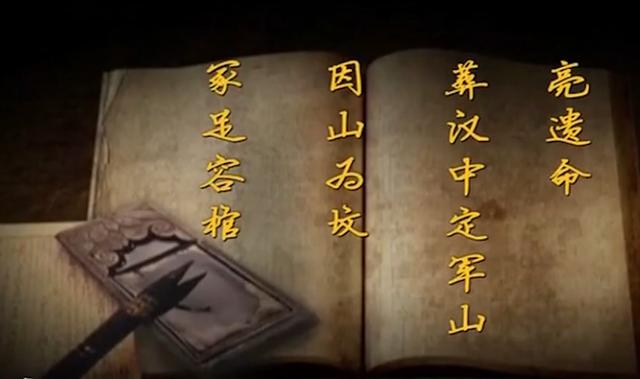 亮遗命
葬汉中定军山
因山为坟
冢足容棺